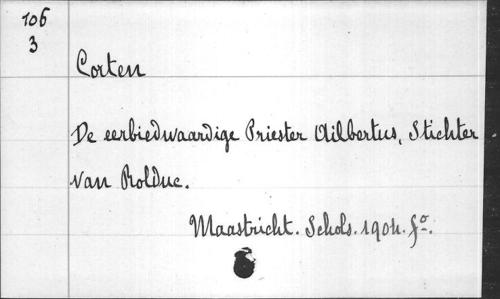 106
3
Corten
De eerbiedwaardige Priester Ailbertus, Stichter
van Rolduc.
Maastricht. Schols. 1904. fº.